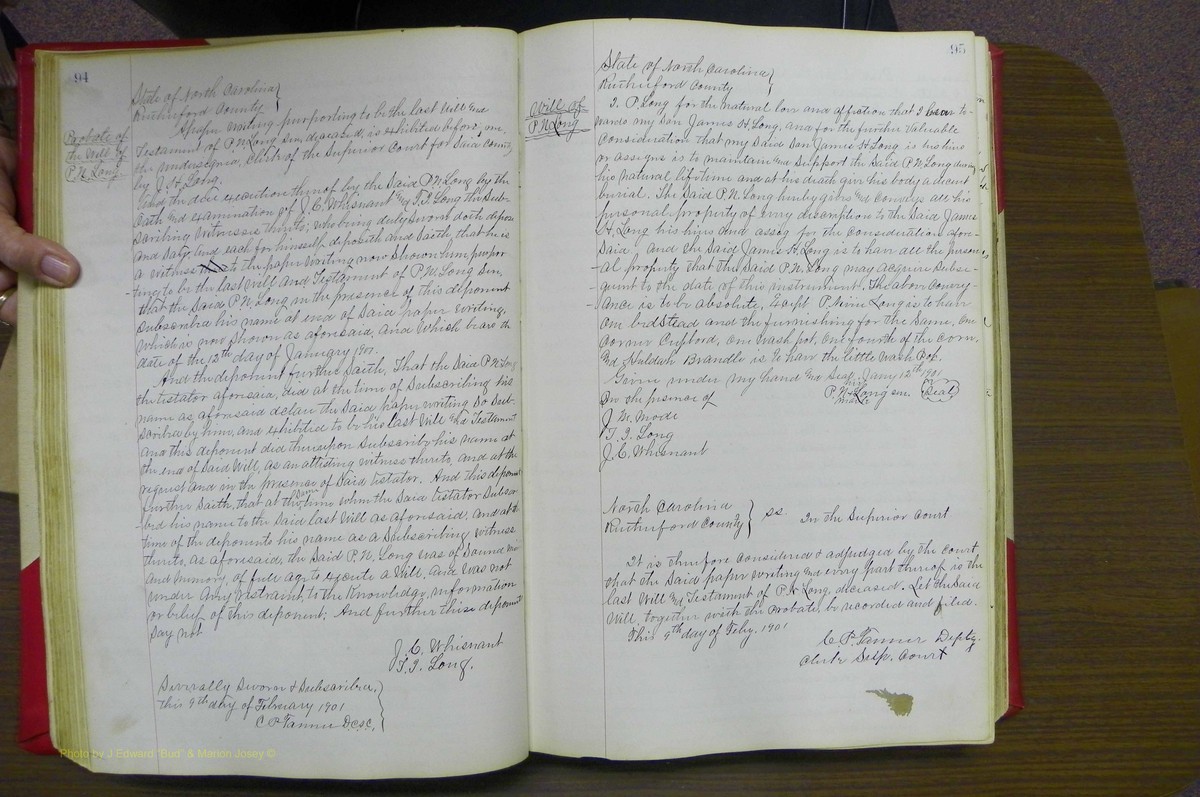 94
State of North Carolina }
Rutherford County }
Probate of
the Will of
P. N. Long
A paper writing purporting to be the last Will and
Testament of P. N. Long Sen, deceased, is exhibited before me,
the undersigned, Clerk of the Superior Court for Said County
by J. H. Long.
And the due execution thereof by the Said P. N. Long by the
oath and examination of J. C. Whisnant and T. I. Long the Sub-
scribing witnesses thereto; who being duly Sworn doth depose
and Say, and each for himself deposith and Saith, that he is
a witness to the paper writing now Shown him, purpor
-ting to be the last Will and Testament of P. N. Long Sen,
that the Said P. N. Long in the presence of this deponent
Subscribed his name at end of Said paper writing,
which is now Shown as aforesaid, and Which bears the
date of the 12th day of January 1901.
And the deponent further Saith, That the Said P. N. Long
the testator aforesaid, did at the time of Subscribing his
name as aforesaid declare the Said paper writing So Sub-
scribed by him, and exhibited to be his last Will and Testament
and this deponent did thereupon Subscribe his name at
the end of Said Will, as an attesting witness thereto, and at the
request and in the presence of Said testator. And this deponent
further Saith, that at the Same time when the Said testator Subscri
-bed his name to the Said last Will as aforesaid, and at the
time of the deponents his name as a Subscribing witness
thereto, as aforesaid, the Said P. N. Long was of Sound Mind
and memory, of full age to execute a Will, and was not
under any restraint, to the Knowledge, information
or belief of this deponent; And further these deponents
Say not
J. C. Whisnant
T. I. Long.
Severally Sworn & Subscribed,
this 9th day of February 1901
C P Tanner D.C.S.C.
95
State of North Carolina }
Rutherford County }
Will of
P. N. Long
I, P. Long for the natural love and affection that I have to-
wards my son James H. Long, and for the further Valuable
Consideration that my Said Son James H. Long, is
or assigns is to maintain and Support the Said P. N. Long during
his natural lifetime and at his death give his body a decent
burial. The Said P. N. Long hereby gives and conveys all his
personal property of every description to the Said James
H. Long his heirs and assigs for the Consideration afore-
Said, and the Said James H. Long is to have all the person
-al property that the Said P. N. Long may acquire Subse-
-quent to the date of this instrument. The above Convey-
-ance is to be absolute, Except P. Long is to have
one bedstead and the furnishing for the Same, One
Corner Cupbord, One wash pot, One fourth of the corn,
and Huldah Brandle is to have the little Wash Pot.
Given under my hand and Seal, Jany 12th 1901
In the presence of
his
P. N. X Long sen (Seal)
mark
J. M. Mode
T. I. Long
J. C. Whisnant
North Carolina }
Rutherford County } SS. In the Superior Court
It is therefore Considered & adjudged by the Court,
that the Said paper writing and every part thereof is the
last Will and Testament of P. N. Long, deceased. Let the Said
Will, together with the probate be recorded and filed.
This 9th day of Feby. 1901
C P. Tanner Depty.
Clerk Sup. Court
Photo by J Edward "Bud" & Marion Josey ©